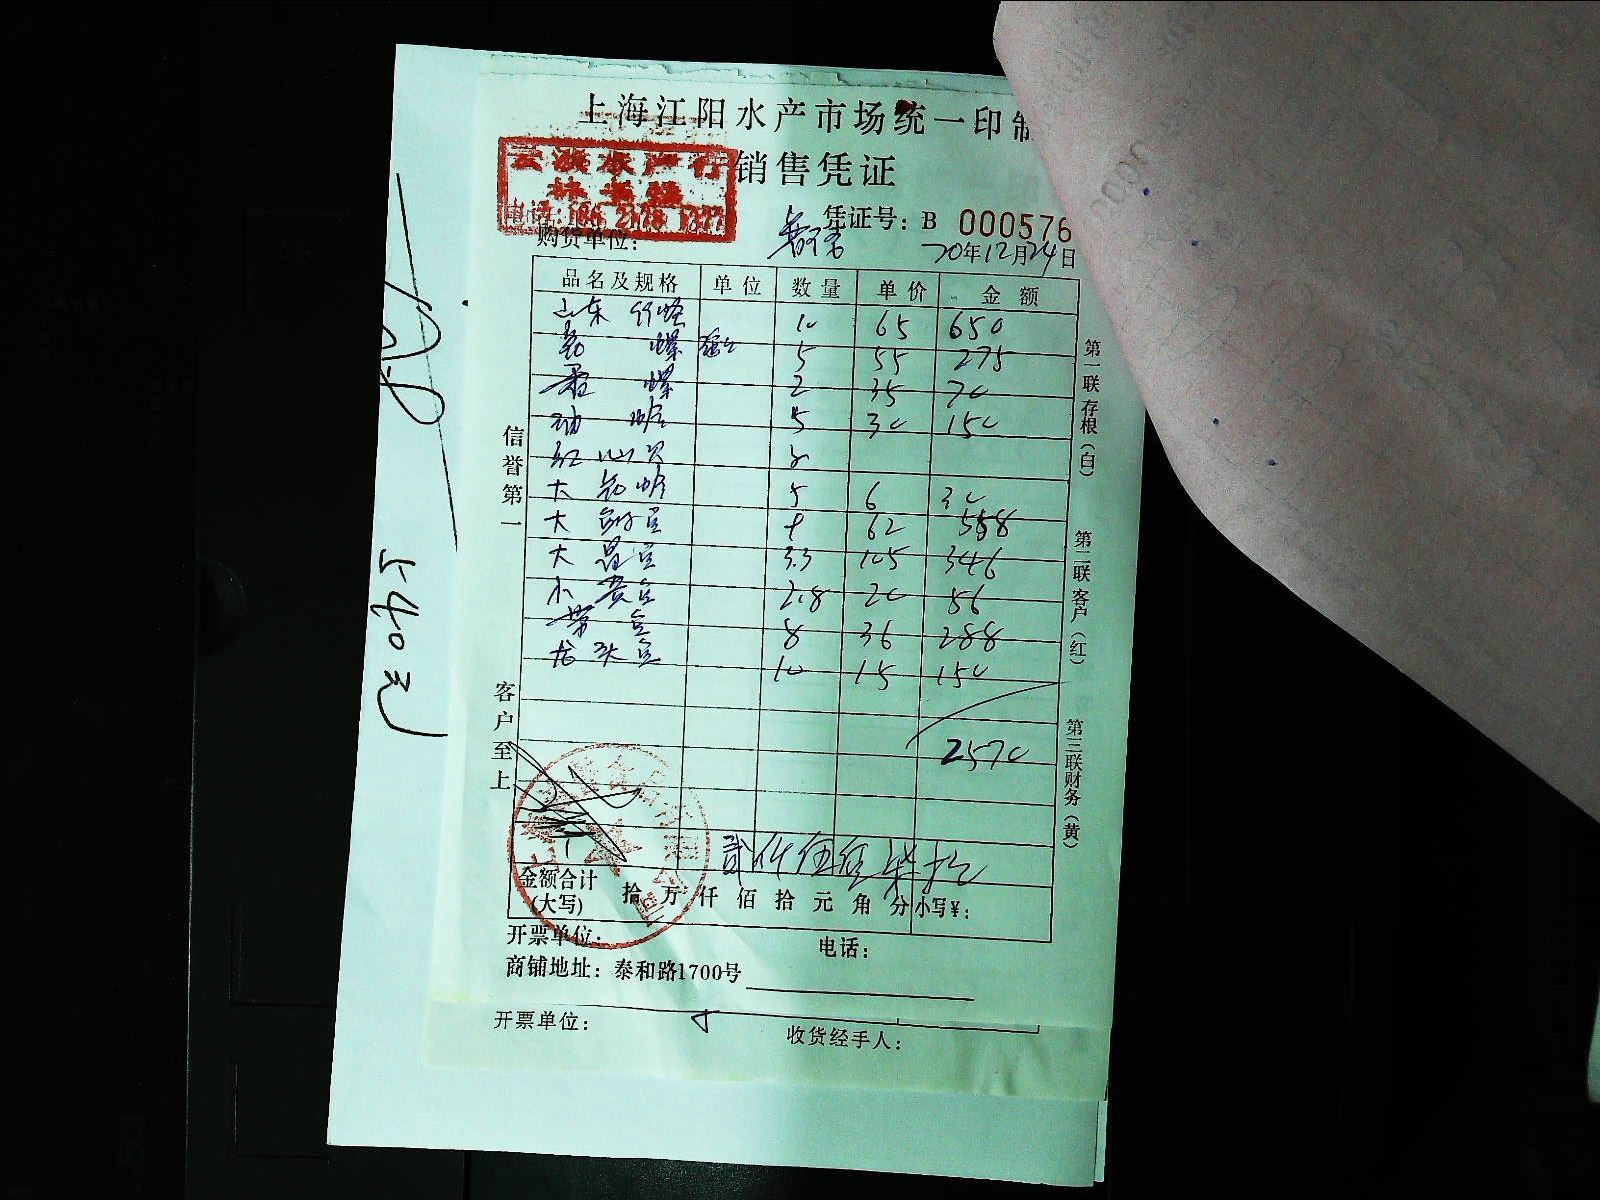 上海江阳水产市场统一印制
销售凭证
水产行
购货单位：
凭证号：B 000576
20年12月24日
品名及规格 单位 数量 单价 金额
山东 10 65 650
花 螺 5 55 275
螺 2 35 70
蛤 5 30 150
红心贝 2
大 花蛤 5 6 30
大 9 62 558
大 3.3 105 346
小 黄鱼 2.8 20 56
带 鱼 8 36 288
龙头鱼 10 15 150
2570
贰仟伍佰柒拾
金额合计（大写） 拾 万 仟 佰 拾 元 角 分 小写¥：
开票单位： 电话：
商铺地址：泰和路1700号
开票单位： 收货经手人：
信誉第一
客户至上
第一联存根（白）
第二联客户（红）
第三联财务（黄）
540元